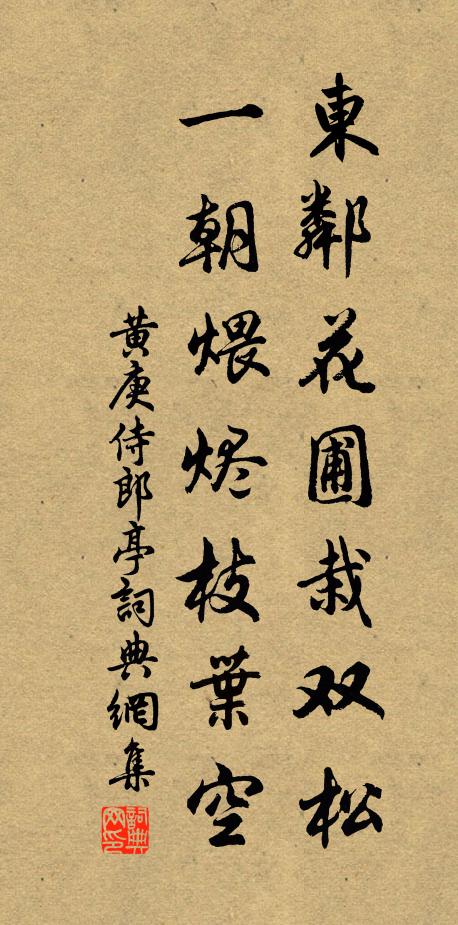 東鄰花圃栽双松
一朝煨烬枝葉空
黄庚侍郎亭詞典網集
詞典网印